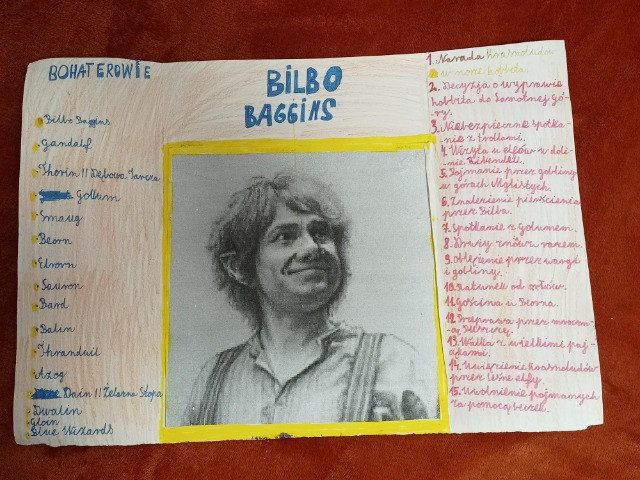 BOHATEROWIE
Bilbo Baggins
Gandalf
Thorin II Dębowa Tarcza
Gollum
Smaug
Beorn
Elrond
Sauron
Bard
Balin
Thranduil
Azog
Dain II Żelazna Stopa
Dwalin
Gloin
Blue Wizards
BILBO
BAGGINS
1. Narada krasnoludów
w norze hobbita.
2. Decyzja o wyprawie
hobbita do Samotnej Gó-
ry.
3. Niebezpieczne spotka-
nie z trollami.
4. Wizyta u elfów w doli-
nie Rivendell.
5. Pojmanie przez gobliny
w górach Mglistych.
6. Znalezienie pierścienia
przez Bilba.
7. Spotkanie z Golumem.
8. Druży znów razem.
9. Oblężenie przez wargi
i gobliny.
10. Ratunek od orłów.
11. Gościna u Beorna.
12. Przeprawa przez mrocz-
ną Puszczę.
13. Walka z wielkimi paj-
ąkami.
14. Uwięzienie krasnoludów
przez leśne elfy.
15. Uwolnienie pojmanych
za pomocą beczek.